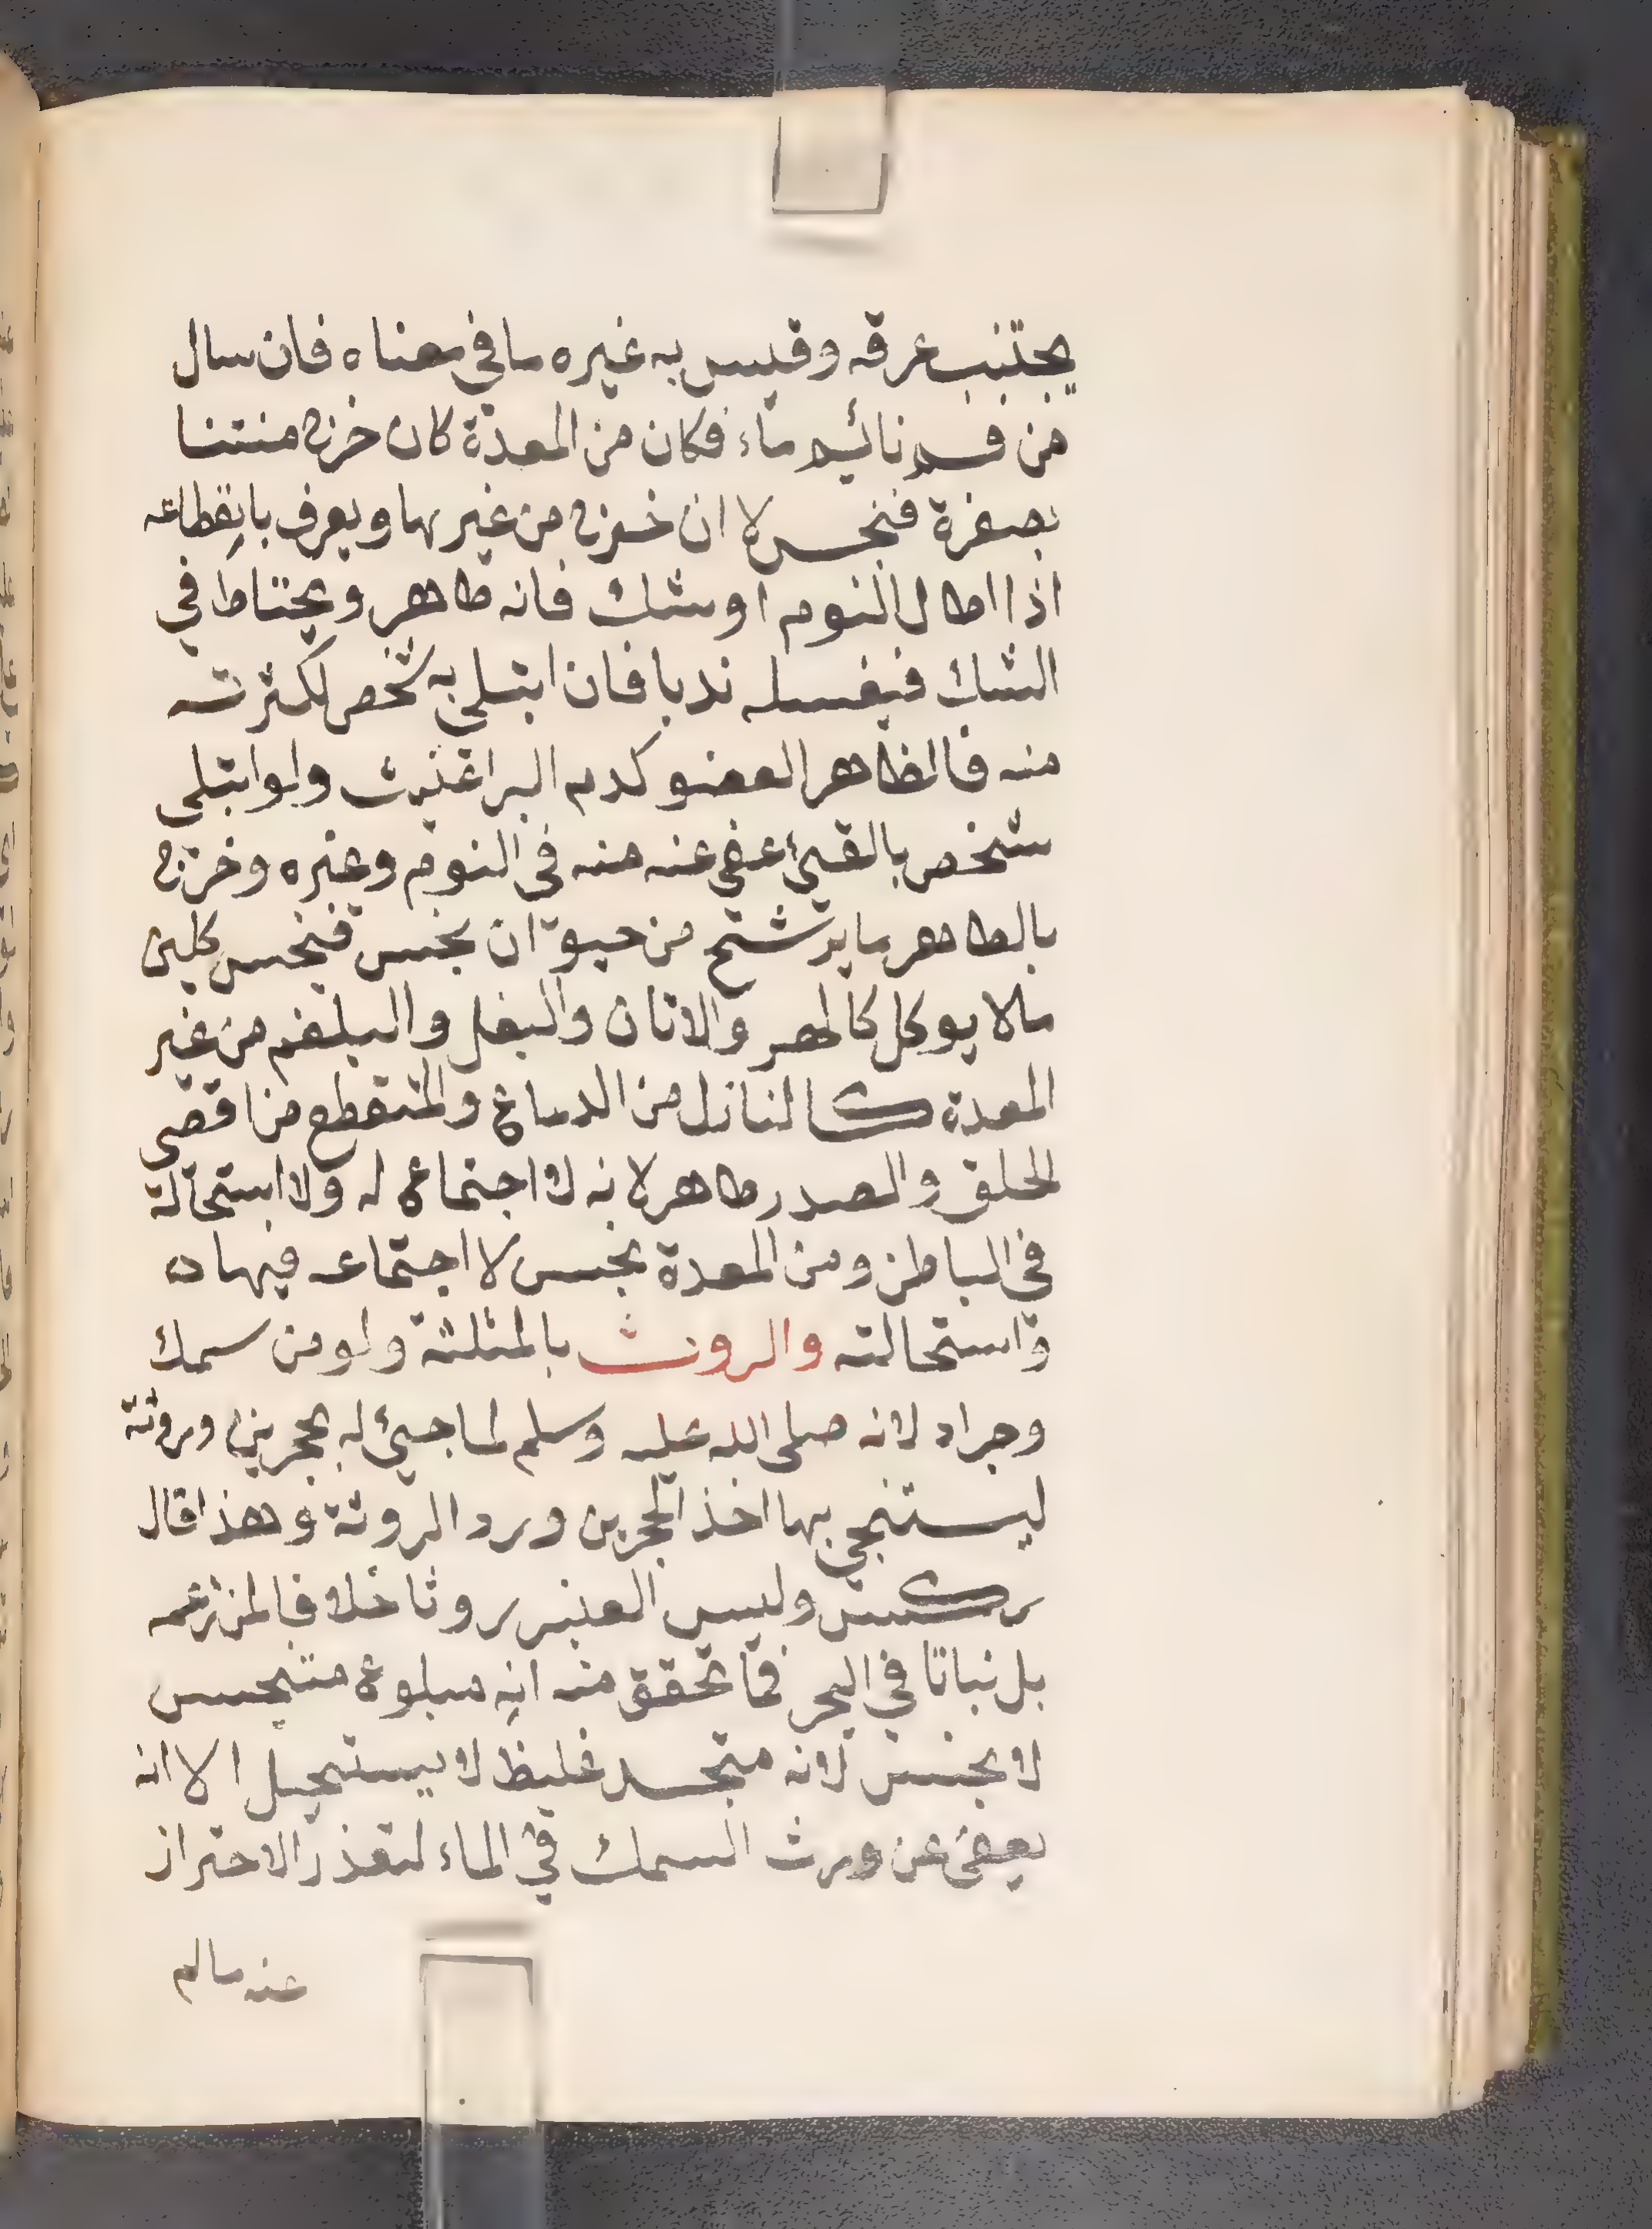 يجتنب عرقه وقيس به غيره مما في معناه فان سال
من فم نائم ماء فكان من المعدة كان خرج منتنا
بصفرة فنجس لا ان خرج من غيرها ويعرف بانقطاعه
اذا اطال النوم او شك فانه طاهر ويحتاط في
الشك فيغسله ندبا فان ابتلي به شخص لكثرته
منه فالظاهر العفو كدم البراغيث ولو ابتلي
شخص بالقيئ عفي عنه منه في النوم وغيره وخرج
بالطاهر ما يترشح من حيوان نجس فنجس كلبن
مالا يوكل كالهر والاتان والبغل والبلغم من غير
المعدة كالنازل من الدماغ والمتقطع من اقصى
الحلق والصدر طاهر لانه لا اجتماع له ولا استحالة
في الباطن ومن المعدة نجس لاجتماعه فيها ه
واستحالته والروث بالمثلثة ولو من سمك
وجراد لانه صلى الله عليه وسلم لما جيئ له بحجرين وروثة
ليستنجي بها اخذ الحجرين ورد الروثة وهذا قال
ركس وليس العنبر روثا خلافا لمن زعمه
بل نباتا في البحر فما تحقق منه انه مبلوع متنجس
لا نجس لانه متجسد غليظ لا يستحيل الا انه
يعفى عن ورث السمك في الماء لتعذر الاحتراز
عنه مالم